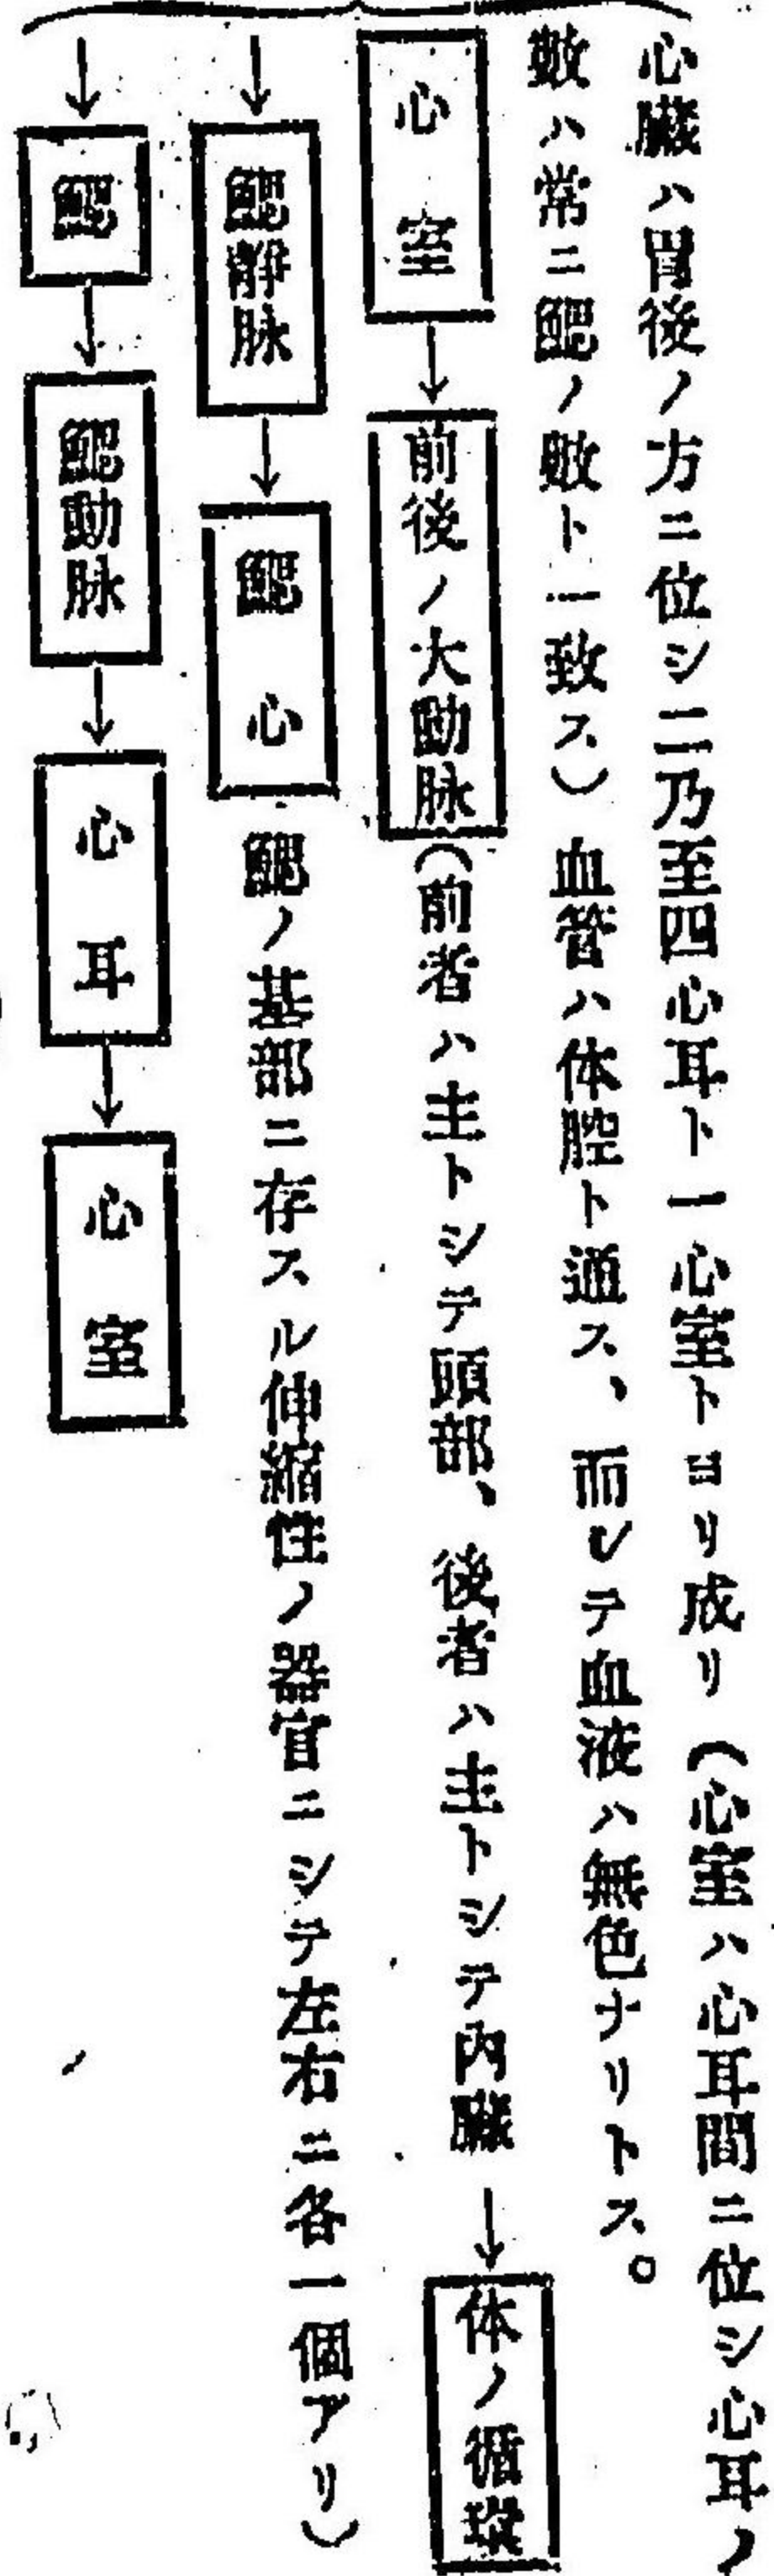 心臓ハ胃後ノ方ニ位シ二乃至四心耳ト一心室トヨリ成リ(心室ハ心耳間ニ位シ心耳ノ
数ハ常ニ鰓ノ数ト一致ス)血管ハ体腔ト通ス、而シテ血液ハ無色ナリトス。
心室→前後ノ大動脉(前者ハ主トシテ頭部、後者ハ主トシテ内臓→体ノ循環
→鰓静脉→鰓心 鰓ノ基部ニ存スル伸縮性ノ器官ニシテ左右ニ各一個アリ)
→鰓→鰓動脉→心耳→心室